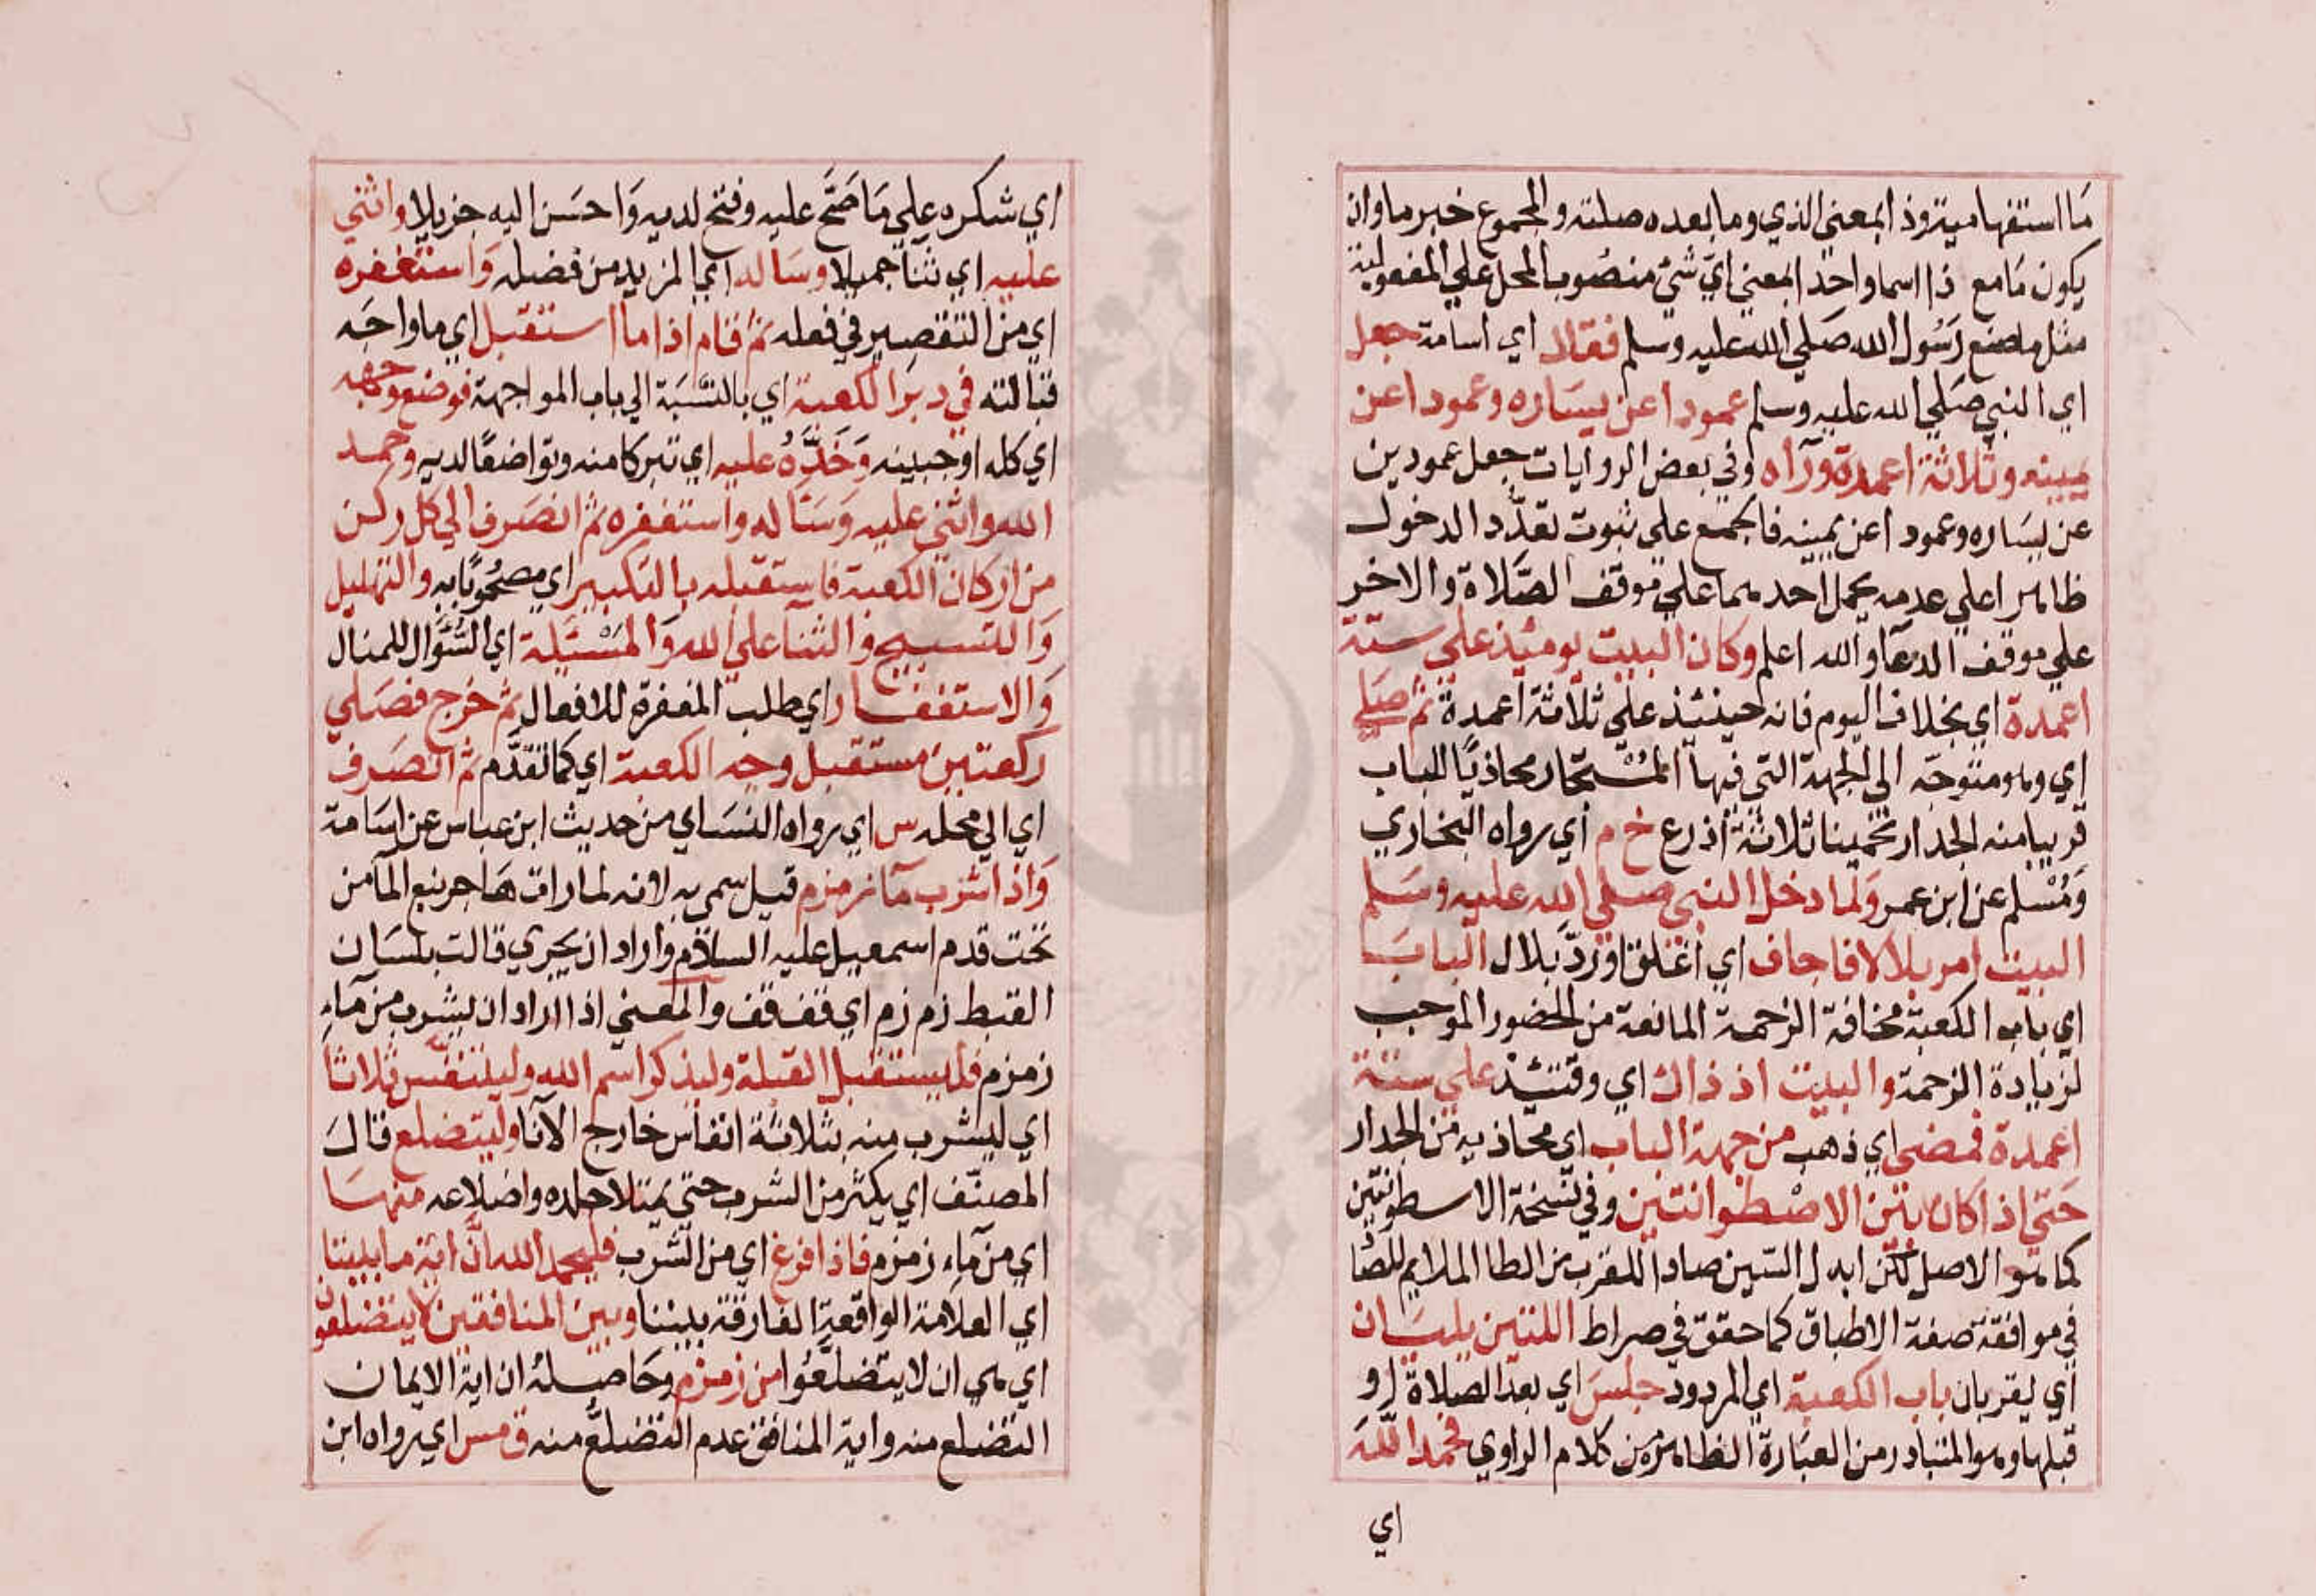 ما استفهامية وذا بمعني الذي وما بعده صلته والمجموع خبر ما وان
يكون مامع ذا اسما واحدا بمعني اي شئ منصوب المحل علي المفعولية
مثل ما صنع رسول الله صلي الله عليه وسلم فقال اي اسامة جعل
اي النبي صلي الله عليه وسلم عمودا عن يساره وعمودا عن
يمينه وثلاثة اعمدة ورآه وفي بعض الروايات جعل عمودين
عن يساره وعمودا عن يمينه فاجمع علي ثبوت تعدد الدخول
ظاهرا علي عدمه يحمل احدهما علي موقف الصلاة والاخر
علي موقف الدعآ والله اعلم وكان البيت يومئذ علي ستة
اعمدة اي بخلاف اليوم فانه حينئذ علي ثلاثة اعمدة ثم صلي
اي وهو متوجه الى الجهة التي فيها المستجار محاذيا للباب
قريبا منه الجدار تخمينا ثلاثة اذرع خ م اي رواه البخاري
ومسلم عن ابن عمر ولما دخل النبي صلي الله عليه وسلم
البيت امر بلالا فاجاف اي اغلق اورد بلال الباب
اي باب الكعبة مخافة الزحمة المانعة من الحضور الموجب
لزيادة الزحمة والبيت اذ ذاك اي وقتئذ علي ستة
اعمدة فمضي اي ذهب من جهة الباب اي محاذيه من الجدار
حتي اذا كان بين الاصطوانتين وفي نسخة الاسطوانتين
كما هو الاصل لكن ابدل السين صادا للقرب من الطا الملايم للصاد
في موافقة صفة الاطباق كما حقق في صراط اللتين يليان
اي يقربان باب الكعبة اي المردود جلس اي بعد الصلاة او
قبلها وهو المتبادر من العبارة الظاهرة من كلام الراوي فحمد الله
اي
اي شكره علي ما صح عليه وفتح لديه واحسن اليه جزيلا واثني
عليه اي ثنا جميلا وساله اي المزيد من فضله واستغفره
اي من التقصير في فعله ثم قام اذا ما استقبل اي ما واجه
قبالته في دبر الكعبة اي بالنسبة الي باب المواجهة فوضع وجهه
اي كله او جبينه وخده عليه اي تبركا منه وتواضعا لديه وحمد
الله واثني عليه وساله واستغفره ثم انصرف الي كل ركن
من اركان الكعبة فاستقبله بالتكبير اي مصحوبا به والتهليل
والتسبيح والثنا علي الله والمسئلة اي السؤال للمنال
والاستغفار اي طلب المغفرة للافعال ثم خرج فصلي
ركعتين مستقبل وجه الكعبة اي كما تقدم ثم انصرف
اي الي محله س اي رواه النساي من حديث ابن عباس عن اسامة
واذا شرب مآ زمزم قيل سمي به لانه لما رات هاجر نبع المآ من
تحت قدم اسمعيل عليه السلام واراد ان يجري قالت بلسان
القبط زم زم اي قف قف والمعني اذا اراد ان يشرب من مآء
زمزم فليستقبل القبلة وليذكر اسم الله وليتنفس ثلاثا
اي ليشرب منه بثلاثة انفاس خارج الآنا وليتضلع قال
المصنف اي يكثر من الشرب حتي يمتلا جلده واضلاعه منها
اي من مآء زمزم فاذا فرغ اي من الشرب فليحمد الله ان اية ما بيننا
اي العلامة الواقعة الفارقة بيننا وبين المنافقين لا يتضلعون
اي هي ان لا يتضلعوا من زمزم وحاصله ان اية الايمان
التضلع منه واية المنافق عدم التضلع منه ق مس اي رواه ابن